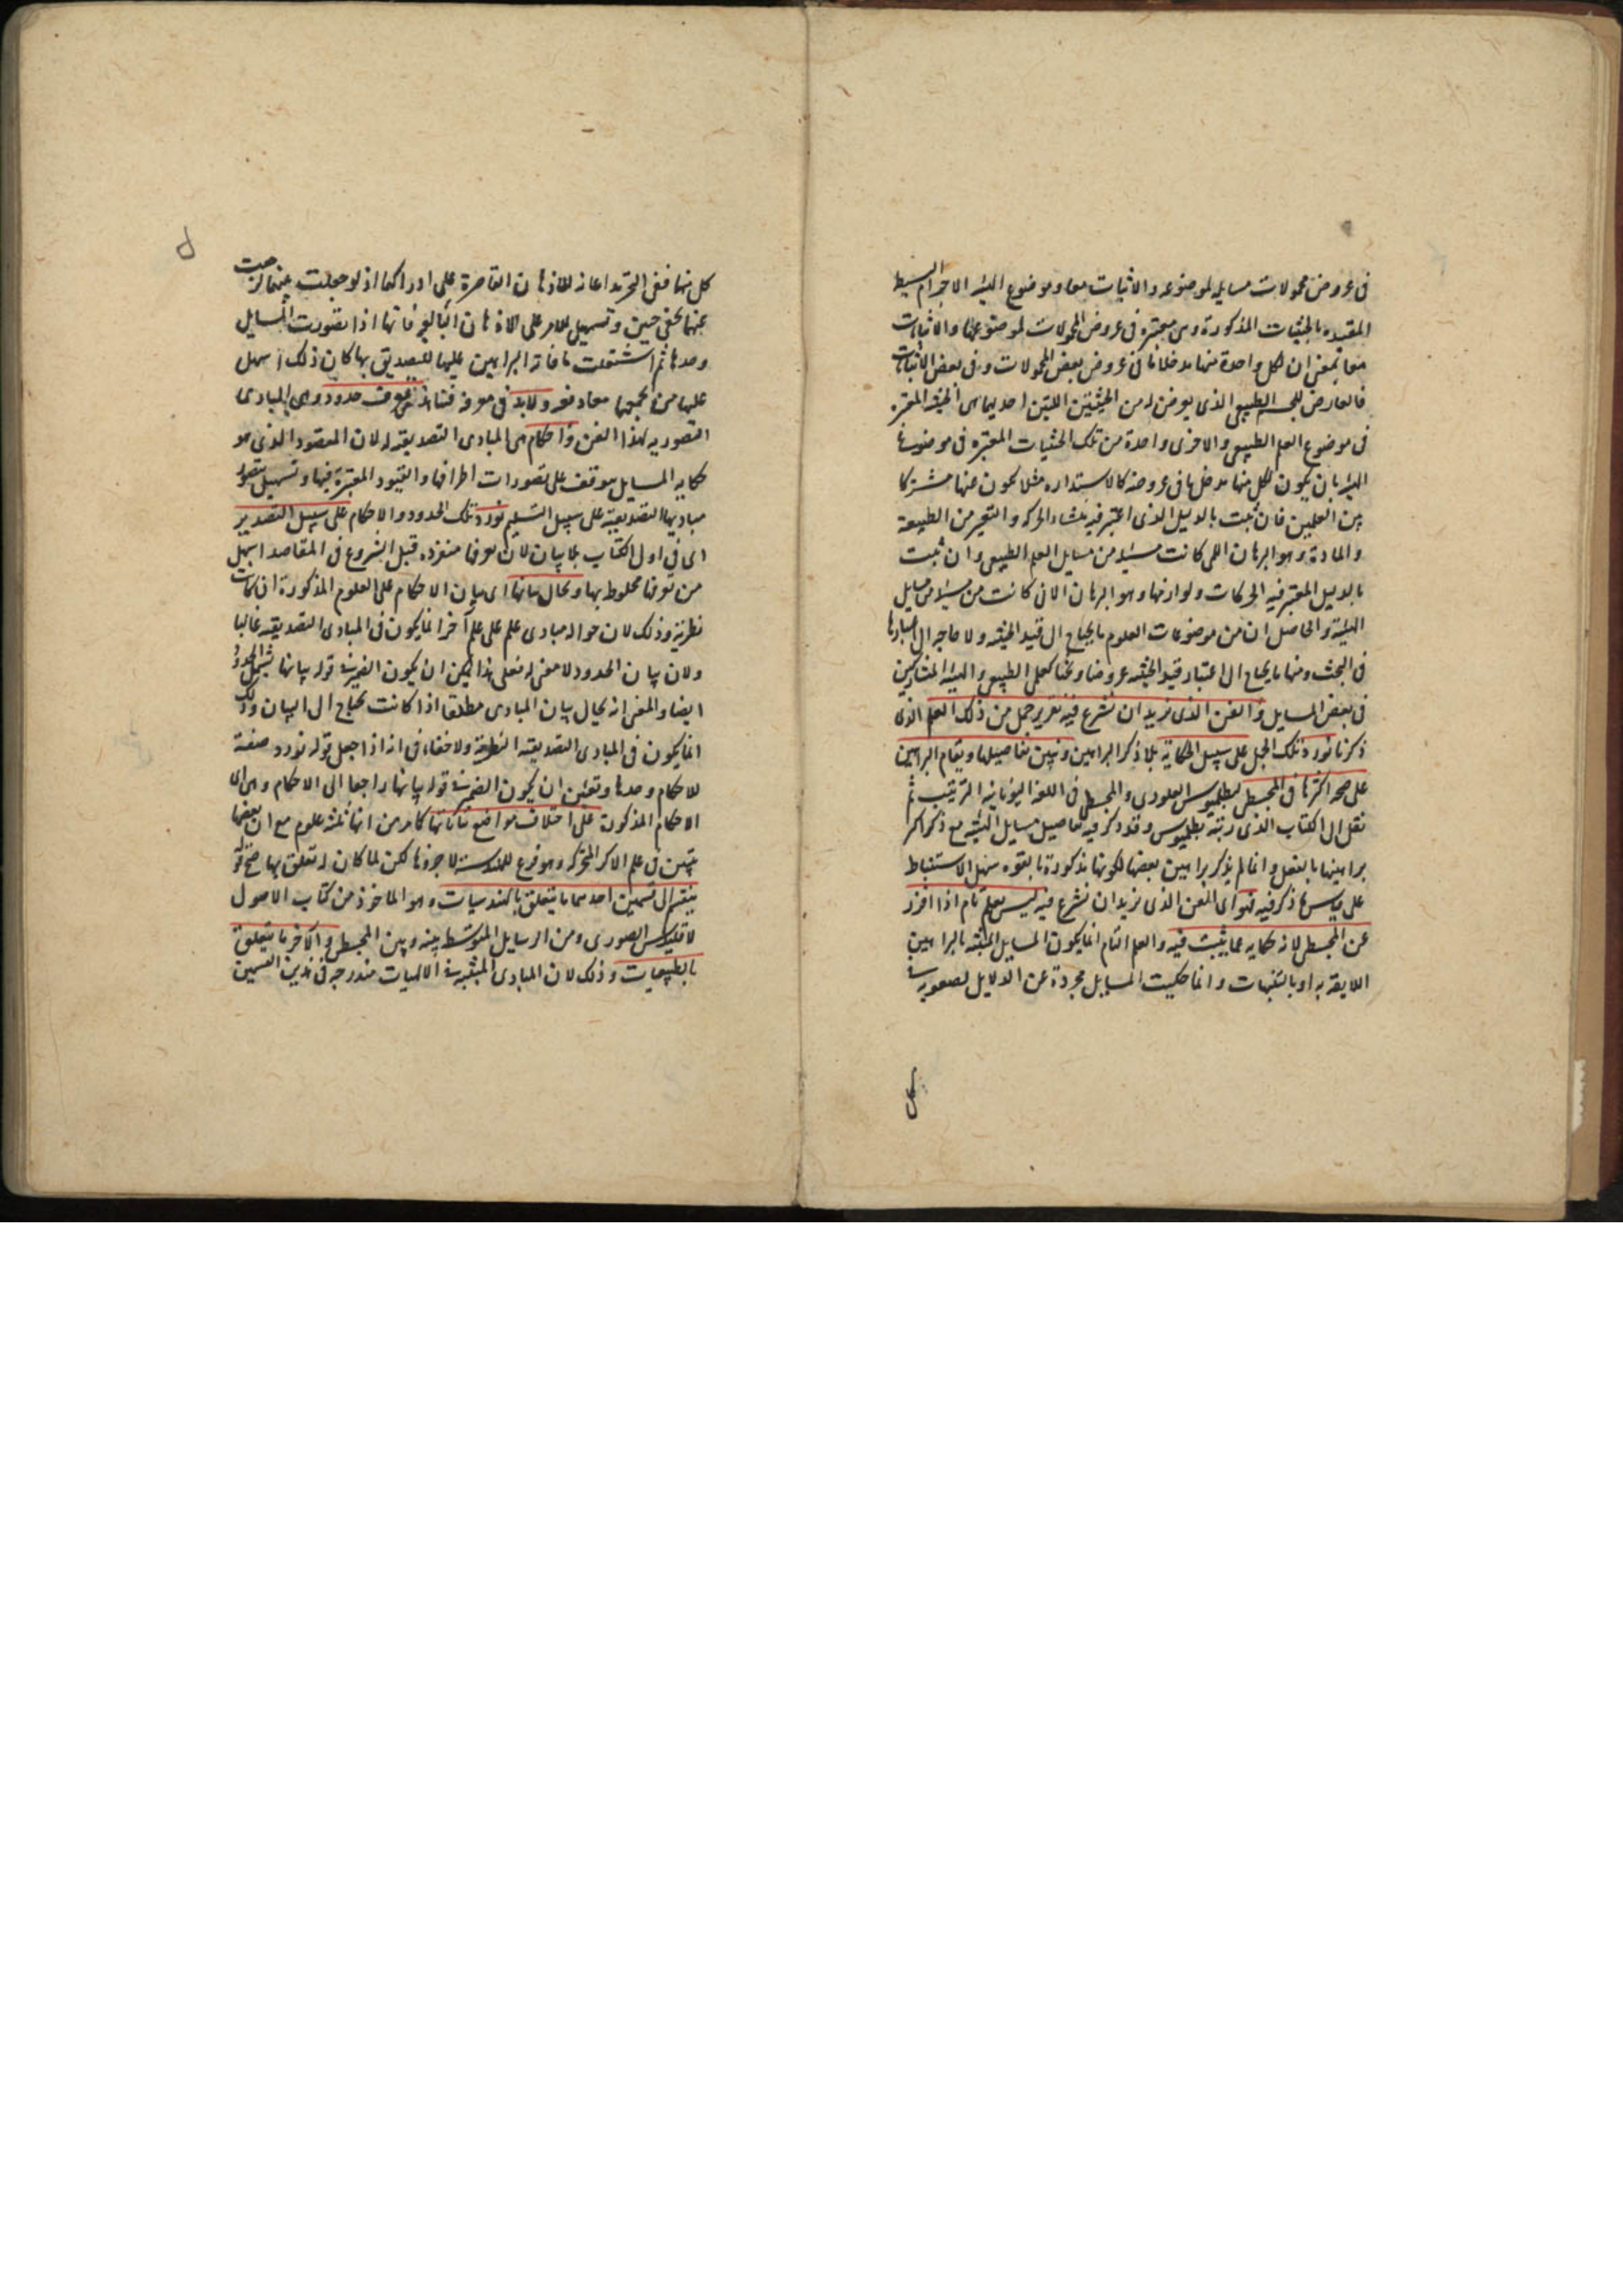 فى عروض محمولات مسايله لموضوعه والاثبات معا وموضوع الهيئة الاجرام البسيطة
المقيده بالحيثيات المذكورة وهى معتبره فى عروض المحمولات لموضوعها والاثبات
معا بمعنى ان لكل واحدة منها مدخلا ما فى عروض بعض المحمولات وفى بعض الاثباتات
فالعارض للجسم الطبيعى الذى يعرض له من الحيثيتين اللتين احديهما هى الحيثية المعتبره
فى موضوع العلم الطبيعى والاخرى واحدة من تلك الحيثيات المعتبره فى موضوع
الهيئة بان يكون لكل منها مدخل ما فى عروضه كالاستداره مثلا يكون عنها مشتركا
بين العلمين فان ثبت بالدليل الذى اعتبر فيه منشاء الحركه والتغير من الطبيعة
والمادة وهو البرهان اللمى كانت مسئلة من مسايل العلم الطبيعى وان ثبت
بالدليل المعتبر فيه الحركات ولوازمها وهو البرهان الانى كانت من مسئلة من مسايل
الهيئة والحاصل ان من موضوعات العلوم ما يحتاج الى قيد الحيثية ولا حاجة الى اعتبارها
فى البحث ومنها ما يحتاج الى اعتبار قيد الحيثية عروضا وبحثا كعلمى الطبيعى والهيئة المتشاركين
فى بعض المسايل والفن الذى نريد ان نشرع فيه تقرير جمل من ذلك العلم الذى
ذكرنا نورد تلك الجمل على سبيل الحكاية بلا ذكر البراهين ونبين تفاصيلها ويقام البراهين
على صحة اكثرها فى المجسطى لبطلميوس القلوذى والمجسطى فى اللغة اليونانية الترتيب ثم
نقل الى الكتاب الذى رتبه بطلميوس وقد ذكر فيه تفاصيل مسايل الهيئة مع ذكر اكثر
براهينها بالفعل وانما لم يذكر براهين بعضها لكونها مذكورة بالقوه سهل الاستنباط
على قياس ما ذكر فيه فهو اى الفن الذى نريد ان نشرع فيه ليس بعلم تام اذا افرد
عن المجسطى لانه حكايه عما يثبت فيه والعلم التام انما يكون المسايل المثبته بالبراهين
اللايقة به او بالتنبيهات وانما حكيت المسايل مجردة عن الدلايل لصعوبة
كل منها ففى التجريد اعانه للاذهان القاصرة على ادراكها اذ لو جعلت
عنها بخفى حنين وتسهيل للامر على الاذهان البالغة فانها اذا تصورت المسايل
وحدها ثم اشتغلت باقامة البراهين عليها للتصديق بها كان ذلك اسهل
عليها من تجشمها معا دفعة ولا بد فى معرفة هذا الفن من حدود وهى المبادى
التصوريه لهذا الفن واحكام هى المبادى التصديقية له لان المقصود الذى هو
حكاية المسايل موقف على تصورات اطرافها والقيود المعتبرة فيها وتسهيل
مباديها التصديقية على سبيل التسليم نورد تلك الحدود والاحكام على سبيل التصدير
اى فى اول الكتاب بلا بيان لان معرفتها منفرده قبل الشروع فى المقاصد اسهل
من معرفتها مخلوط بها ويحال بيانها اى بيان الاحكام على العلوم المذكورة ان كانت
نظرية وذلك لان حواله مبادى علم على علم آخر انما يكون فى المبادى التصديقية غالبا
ولان بيان الحدود لا معنى له فعلى هذا يمكن ان يكون الضمير فى قوله بيانها شامل للحدود
ايضا والمعنى انه يحال بيان المبادى مطلقا اذا كانت تحتاج الى البيان وذلك
انما يكون فى المبادى التصديقية النظرية ولا خفاء فى انه اذا جعل قوله نورد صفة
للاحكام وحدها وتعين ان يكون الضمير فى قوله بيانها راجعا الى الاحكام وهى اى
الاحكام المذكورة على اختلاف مواضع بياناتها كما مر من انها ثلثة علوم مع ان بعضها
يتبين فى علم الاكر المتحركة وهو فرع للهندسة لا جزؤها لكن لما كان له تعلق بها صح قوله
ينقسم الى قسمين احدهما ما يتعلق بالهندسيات وهو الماخوذ من كتاب الاصول
لاقليدس الصورى ومن الرسايل المتوسطه بينه وبين المجسطى والاخر ما يتعلق
بالطبيعيات وذلك لان المبادى المثبتة فى الالهيات مندرجه فى هذين القسمين